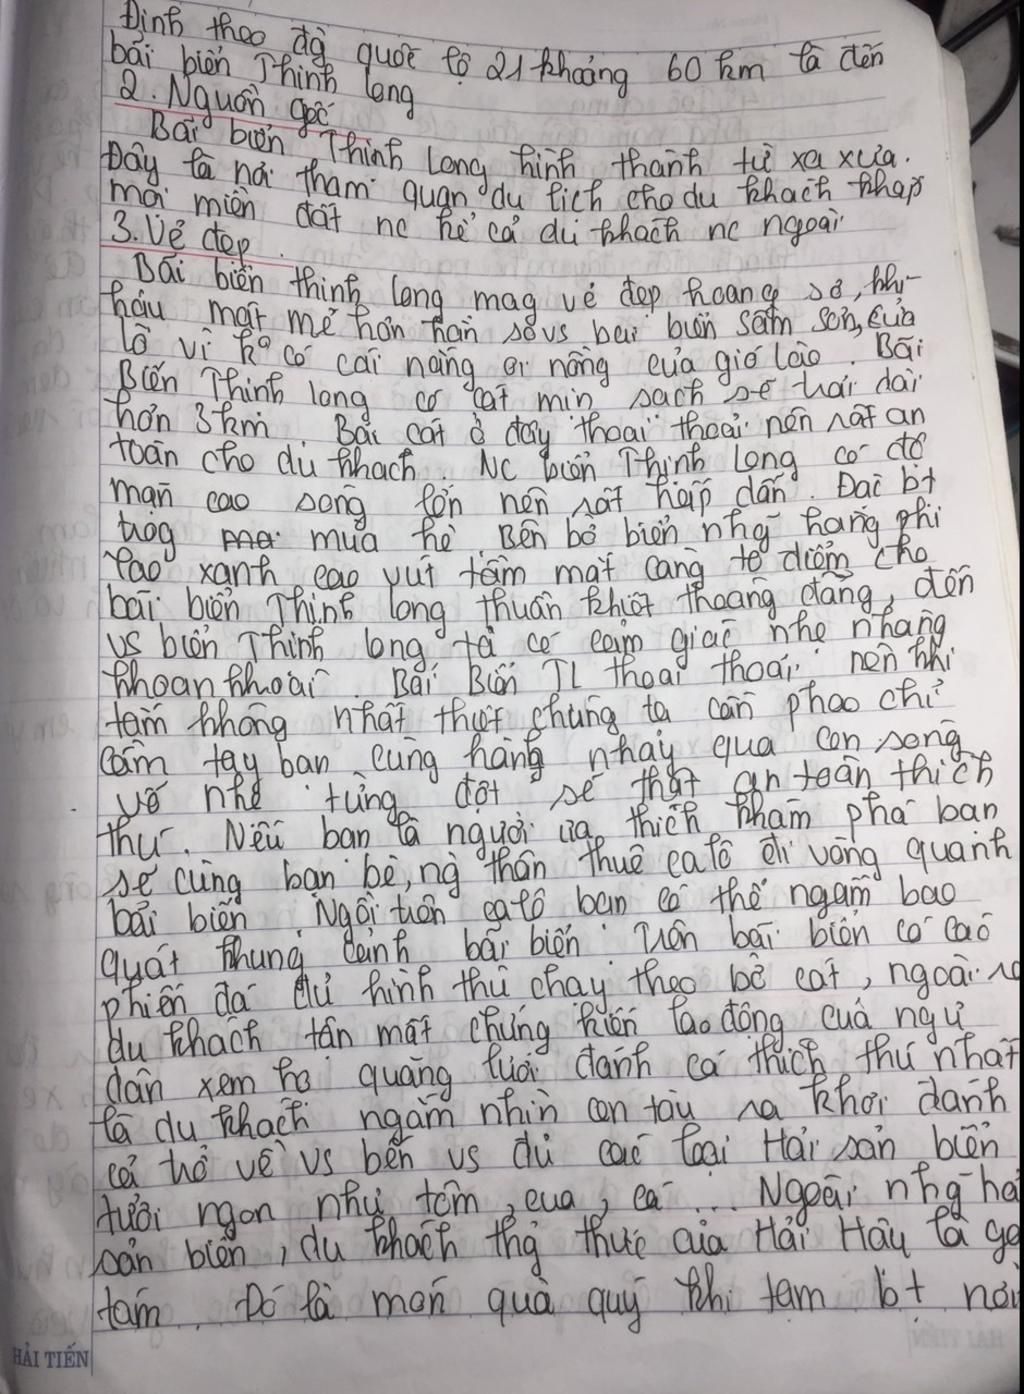 Định theo đg quốc lộ 21 khoảng 60 km là đến
bãi biển Thịnh long
2. Nguồn gốc
Bãi biển Thịnh Long hình thành từ xa xưa.
Đây là nơi tham quan du lịch cho du khách khắp
mọi miền đất nc kể cả du khách nc ngoài
3. Vẻ đẹp.
Bãi biển thịnh long mag vẻ đẹp hoang sơ, khí
hậu mát mẻ hơn hẳn so vs bãi biển sầm sơn, cửa
lò vì ko có cái nắng oi nồng của gió lào. Bãi
Biển Thịnh long có cát mịn sạch sẽ trải dài
hơn 3km. Bãi cát ở đây thoai thoải nên rất an
toàn cho du khách. Nc biển Thịnh Long có độ
mặn cao sóng lớn nên rất hấp dẫn. Đặc bt
trog mùa hè. Bên bờ biển nhg hàng phi
lao xanh cao vút tầm mắt càng tô điểm cho
bãi biển Thịnh long thuần khiết thoáng đãng, đến
vs biển Thịnh long ta có cảm giác nhẹ nhàng
khoan khoái. Bãi Biển TL thoai thoải nên khi
tắm không nhất thiết chúng ta cần phao chỉ
cầm tay bạn cùng hàng nhảy qua con sóng
vỗ nhẹ từng đợt sẽ thật an toàn thích
thú. Nếu bạn là người ưa thích khám phá bạn
sẽ cùng bạn bè, ng thân thuê ca lô đi vòng quanh
bãi biển. Ngồi trên ca lô bạn có thể ngắm bao
quát khung cảnh bãi biển. Trên bãi biển có các
phiến đá đủ hình thù chạy theo bờ cát, ngoài ra
du khách tận mắt chứng kiến lao động của ngư
dân xem họ quăng lưới đánh cá thích thú nhất
là du khách ngắm nhìn con tàu ra khơi đánh
cá trở về vs bến vs đủ các loại Hải sản biển
tươi ngon như tôm, cua, cá ... Ngoài nhg hải
sản biển, du khách thg thức của Hải Hậu là gạo
tám. Đó là món quà quý khi tạm bt nơi
HẢI TIẾN